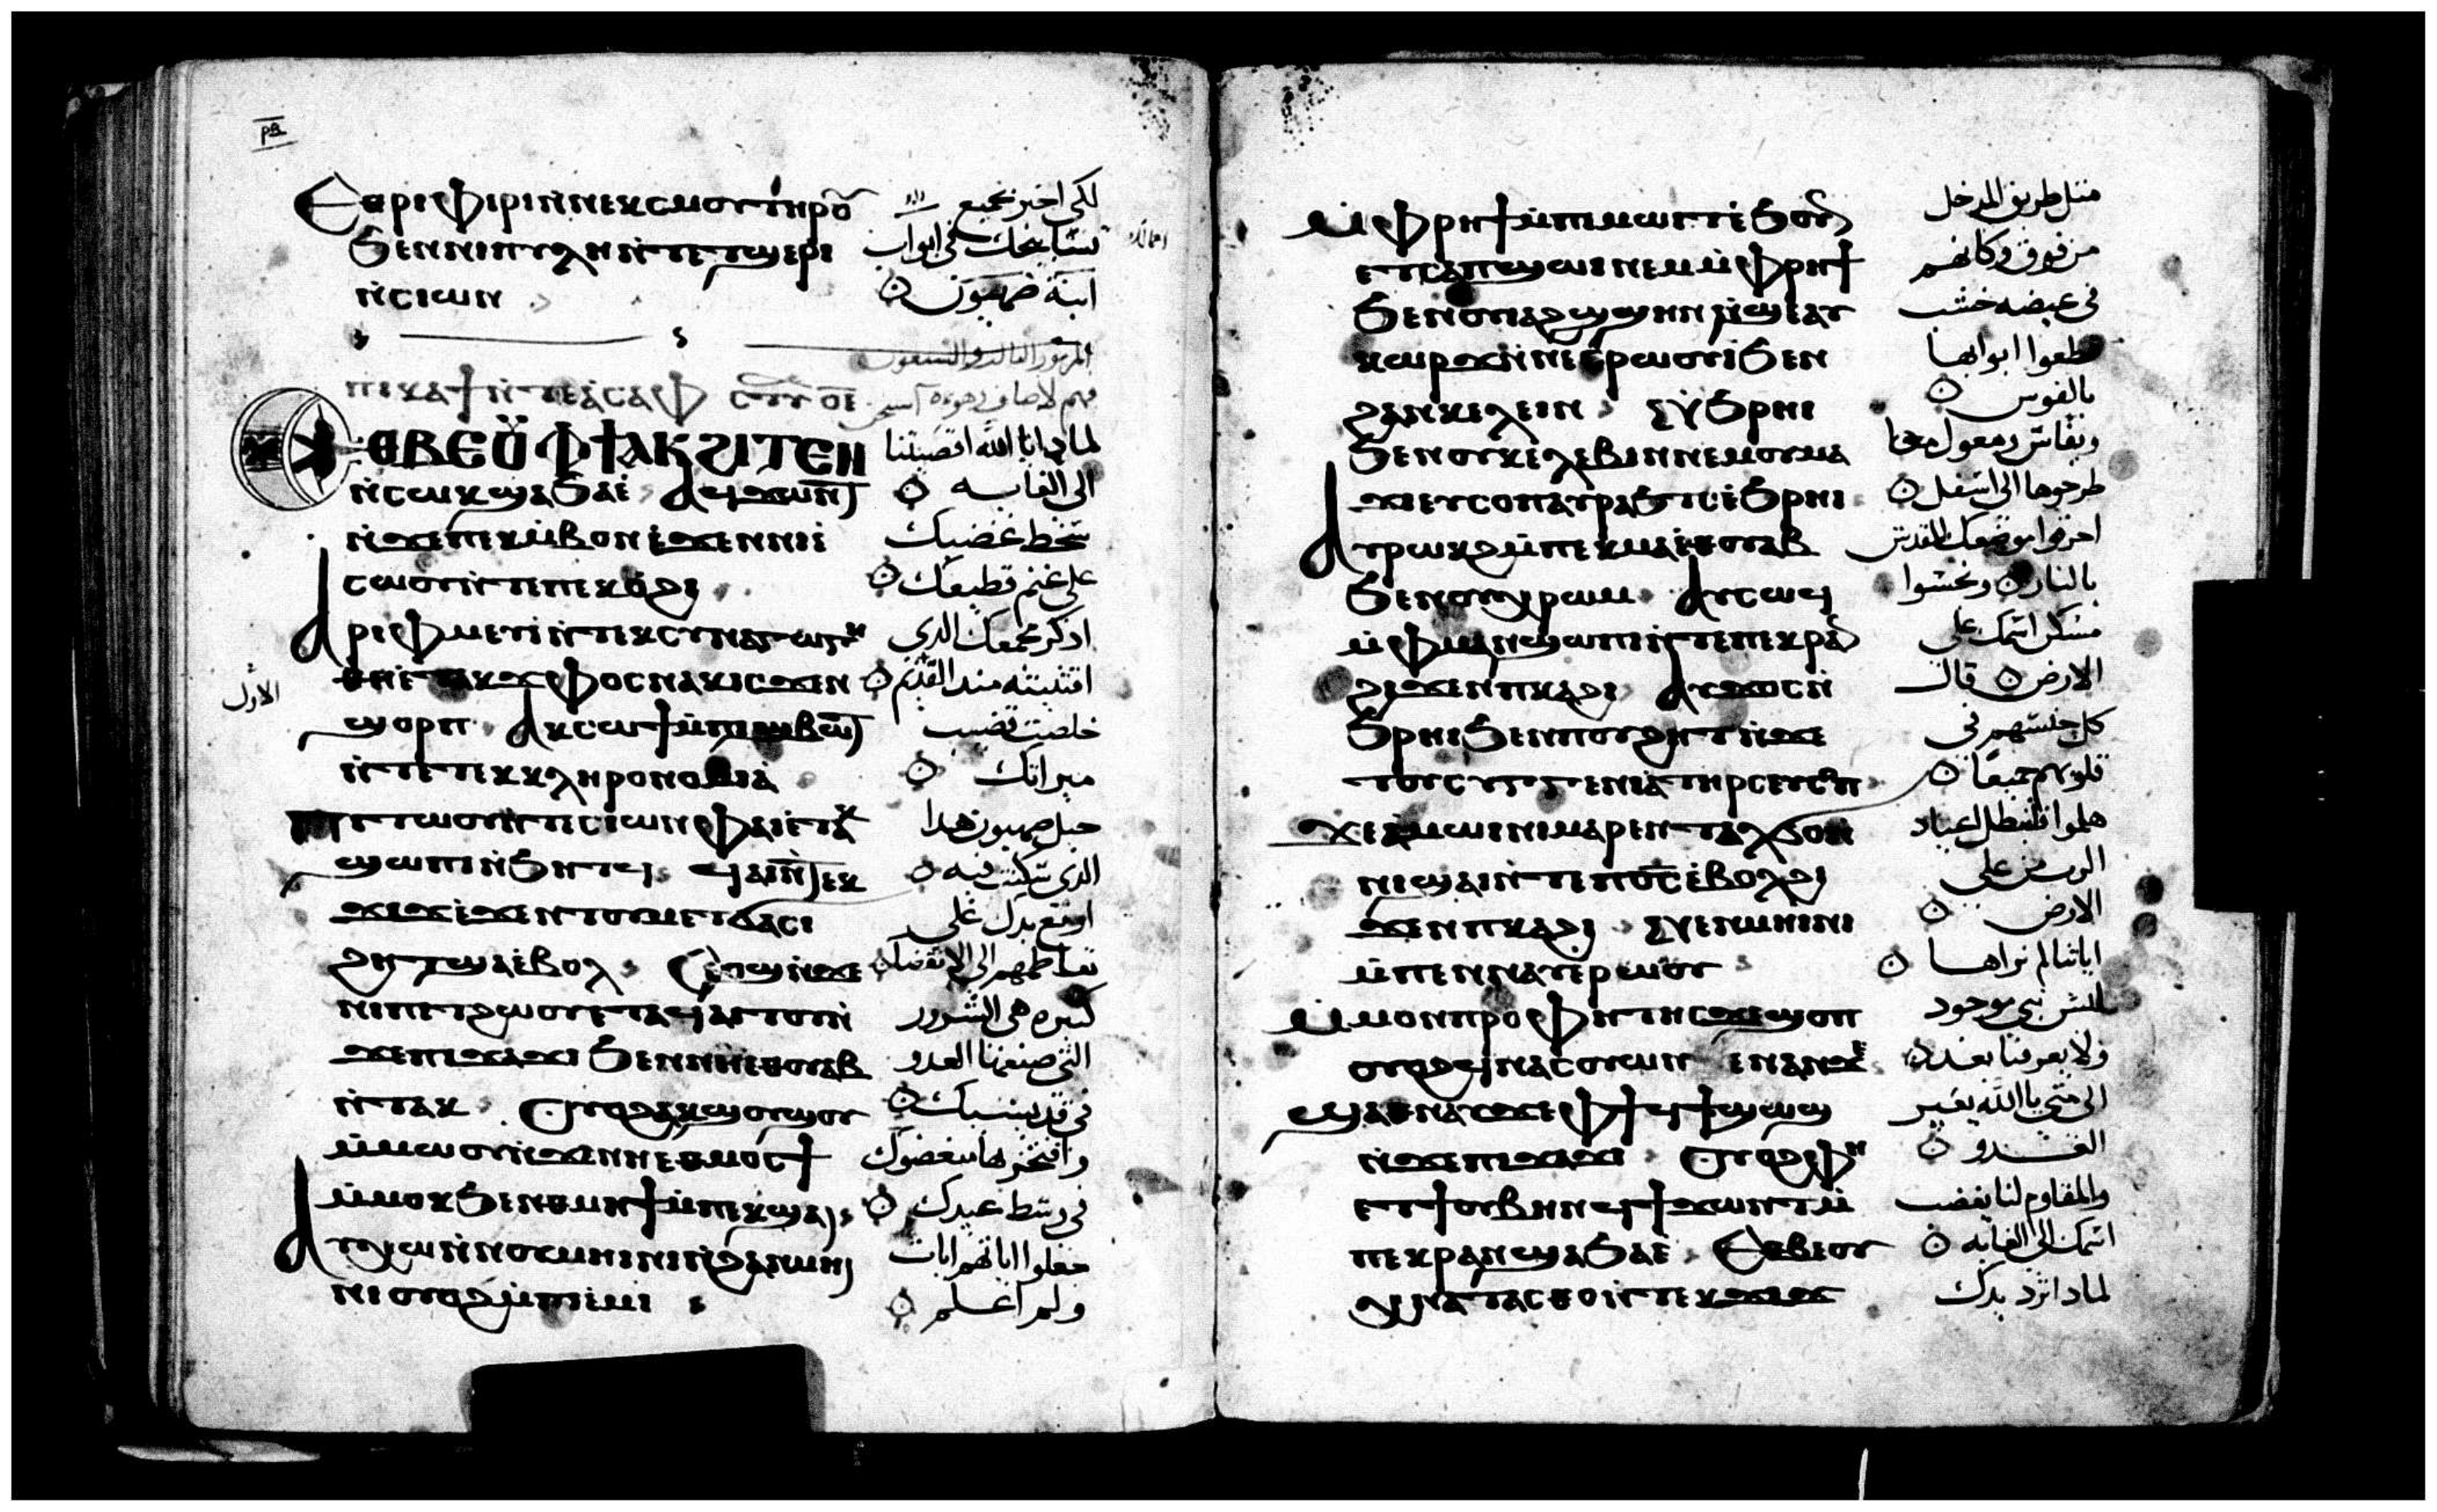 ⲣⲃ
Ⲉⲑⲣⲓⲫⲓⲣⲓ ⲛⲛⲉⲕⲥⲙⲟⲩ ⲧⲏⲣⲟⲩ
لكي اخبر بجميع
ϧⲉⲛⲛⲓⲡⲩⲗⲏ ⲛⲧⲉⲧϣⲉⲣⲓ
تسابيحك في ابواب
ⲛⲥⲓⲱⲛ
ابنة صهيون
المزمور الثالث والسبعون
ⲡⲓⲕⲁϯ ⲛⲧⲉⲁⲥⲁⲫ
فهم لاصاف
ⲉⲑⲃⲉⲟⲩ ⲫϯ ⲁⲕϩⲓⲧⲉⲛ
لماذا يا الله اقصيتنا
ⲛⲥⲱⲕ ϣⲁϧⲁⲉ ⲁϥϫⲱⲛⲧ
الى الغايه
ⲛϫⲉⲡⲉⲕⲙⲃⲟⲛ ⲉϫⲉⲛⲛⲓⲉ
سخط غضبك
ⲥⲱⲟⲩ ⲛⲧⲉⲡⲉⲕⲟϩⲓ
على غنم قطيعك
ⲁⲣⲓⲫⲙⲉⲩⲓ ⲛⲧⲉⲕⲥⲩⲛⲁⲅⲱⲅⲏ
اذكر مجمعك الذي
ⲑⲏⲉⲧⲁⲕϫⲫⲟⲥ ⲛⲁⲕ ⲓⲥϫⲉⲛ
اقتنيته منذ القديم
الاول
ϣⲟⲣⲡ ⲁⲕⲥⲱϯ ⲙⲡϣⲃⲱⲧ
خلصت قضيب
ⲛⲧⲉⲧⲉⲕⲕⲗⲏⲣⲟⲛⲟⲙⲓⲁ
ميراثك
ⲡⲧⲱⲟⲩ ⲛⲧⲉⲥⲓⲱⲛ ⲫⲁⲓ ⲉⲧⲁⲕ
جبل صهيون هذا
ϣⲱⲡⲓ ⲛϧⲏⲧϥ ϥⲁⲓ ⲛⲧⲉⲕ
الذي سكنت فيه
ϫⲓϫ ⲉϫⲉⲛⲧⲟⲩⲙⲉⲧϭⲁⲥⲓ
ارفع يدك على
ϩⲏⲧ ϣⲁⲉⲃⲟⲗ
تعاظمهم الى الانقضا
ⲛⲓⲡⲉⲧϩⲱⲟⲩ ⲉⲧⲁϥⲁⲓⲧⲟⲩ ⲛ
كثيره هي الشرور
ϫⲉⲡⲓϫⲁϫⲓ ϧⲉⲛⲛⲏⲉⲑⲟⲩⲁⲃ
التي صنعها العدو
ⲛⲧⲁⲕ ⲟⲩⲟϩ ⲁⲩϣⲟⲩϣⲟⲩ
في قديسيك
ⲙⲙⲱⲟⲩ ⲛϫⲉⲛⲏⲉⲑⲙⲟⲥϯ
وافتخر هاا مبغضوك
ⲙⲙⲟⲕ ϧⲉⲛⲑⲙⲏϯ ⲙⲡⲉⲕϣⲁⲓ
في وسط عيدك
ⲁⲩⲭⲱ ⲛⲛⲟⲩⲙⲏⲓⲛⲓ ⲛϩⲁⲛⲙⲏⲓ
جعلوا اياتهم ايات
ⲛⲓ ⲟⲩⲟϩ ⲙⲡⲓⲉⲙⲓ
ولم اعلم
ⲙⲫⲣⲏϯ ⲙⲡⲓⲙⲱⲓⲧ ⲉϧⲟⲩⲛ
مثل طريق المدخل
ⲉⲧⲥⲁⲡϣⲱⲓ ⲛⲉⲙ ⲙⲫⲣⲏϯ
من فوق وكانهم
ϧⲉⲛⲟⲩⲓⲁϩϣϣⲏⲛ ⲛϣⲉ ⲁⲩ
في غيضه خشب
ⲕⲱⲣϫ ⲛⲛⲉⲥⲣⲱⲟⲩ ϧⲉⲛ
قطعوا ابوابها
ϩⲁⲛⲕⲉⲗⲉⲓⲛ ϩⲓϧⲣⲏⲓ
بالفوس
ϧⲉⲛⲟⲩⲕⲉⲗⲉⲃⲓⲛ ⲛⲉⲙⲟⲩⲙⲁ
وبفاس ومعول
ϫⲓⲉⲩⲥⲟⲡ ⲁⲩⲣⲁϧⲧⲥ ⲉϧⲣⲏⲓ
طرحوها الى اسفل
ⲁⲩⲣⲱⲕϩ ⲙⲡⲉⲕⲙⲁ ⲉⲑⲟⲩⲁⲃ
احرقوا موضعك المقدس
ϧⲉⲛⲟⲩⲭⲣⲱⲙ ⲁⲩⲥⲱϥ
بالنار ونجسوا
ⲙⲫⲙⲁⲛϣⲱⲡⲓ ⲛⲧⲉⲡⲉⲕⲣⲁⲛ
مسكن اسمك على
ϩⲓϫⲉⲛⲡⲕⲁϩⲓ ⲁⲩϫⲟⲥ ⲛ
الارض قال
ϧⲣⲏⲓ ϧⲉⲛⲡⲟⲩϩⲏⲧ ⲛϫⲉ
كل جنسهم في
ⲧⲟⲩⲥⲩⲅⲅⲉⲛⲓⲁ ⲧⲏⲣⲥ ⲉⲩⲥⲟⲡ
قلوبهم جميعا
ϫⲉⲁⲙⲱⲓⲛⲓ ⲙⲁⲣⲉⲛⲧⲁⲗϭⲟ ⲛ
هلموا فلنبطل اعياد
ⲛⲓϣⲁⲓ ⲛⲧⲉⲡⲟⲥ ⲉⲃⲟⲗϩⲓ
الرب من على
ϫⲉⲛⲡⲕⲁϩⲓ ϩⲓⲉⲛⲙⲏⲓⲛⲓ
الارض
ⲙⲡⲉⲛⲛⲁⲩ ⲉⲣⲱⲟⲩ
اياتنا لم نراها
ⲙⲙⲟⲛⲡⲣⲟⲫⲏⲧⲏⲥ ϫⲉϣⲟⲡ
ليس نبي موجود
ⲟⲩⲟϩ ϥⲛⲁⲥⲟⲩⲱⲛ ⲉⲛⲁⲛϫⲉ
ولا يعرفنا بعد
ϣⲁⲑⲛⲁⲩ ϫⲉ ⲫϯ ϥϯϣⲱϣ
الى متى يا الله يعير
ⲛϫⲉⲡⲓϫⲁϫⲓ ⲟⲩⲟϩ ⲫⲏ
العدو
ⲉⲧϯⲟⲩⲃⲏⲛ ϥϯϫⲱⲛⲧ ⲙ
والمقاوم لنا يغضب
ⲡⲉⲕⲣⲁⲛ ϣⲁϧⲁⲉ Ⲉⲑⲃⲉⲟⲩ
اسمك الى الغايه
ⲭⲛⲁⲧⲁⲥⲑⲟ ⲛⲧⲉⲕϫⲓϫ
لماذا ترد يدك